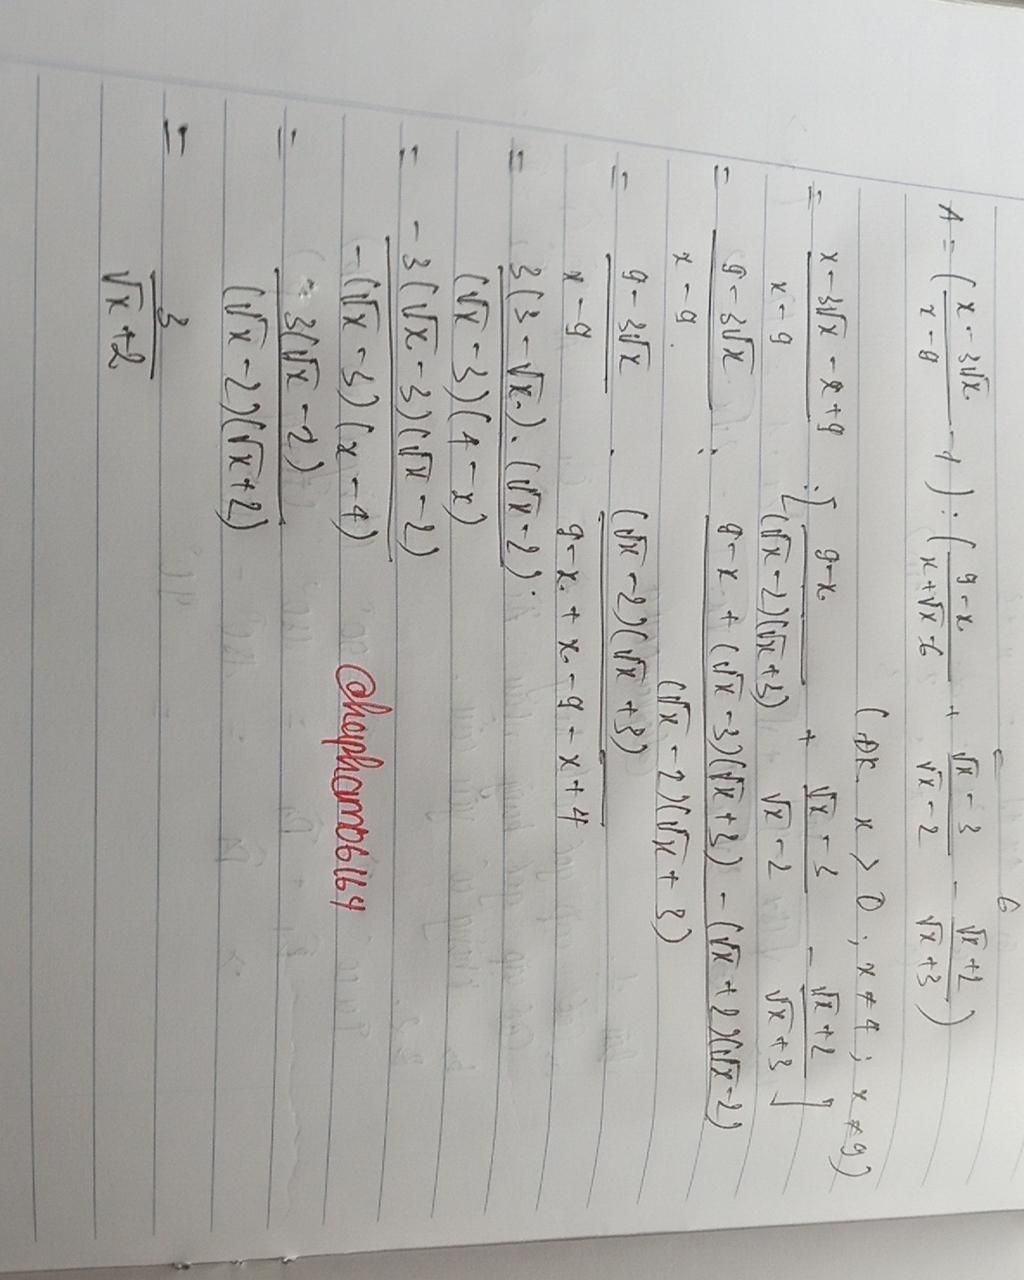 A = ( (x - 3√x)/(x - 9) - 1 ) : ( (9 - x)/(x + √x - 6) + (√x - 3)/(√x - 2) - (√x + 2)/(√x + 3) )
(ĐK x > 0 ; x ≠ 4 ; x ≠ 9)
= (x - 3√x - x + 9)/(x - 9) : [ (9 - x)/((√x - 2)(√x + 3)) + (√x - 3)/(√x - 2) - (√x + 2)/(√x + 3) ]
= (9 - 3√x)/(x - 9) : (9 - x + (√x - 3)(√x + 3) - (√x + 2)(√x - 2))/((√x - 2)(√x + 3))
= (9 - 3√x)/(x - 9) . ((√x - 2)(√x + 3))/(9 - x + x - 9 - x + 4)
= (3(3 - √x).(√x - 2))/((√x - 3)(4 - x))
= (-3(√x - 3)(√x - 2))/(-(√x - 3)(x - 4))
= (3(√x - 2))/((√x - 2)(√x + 2))
= 3/(√x + 2)
@hopham06164